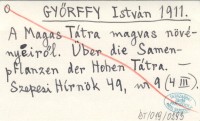 GYŐRFFY István 1911.
A Magas Tátra magvas növé-
nyeiről. Über die Samen-
pflanzen der Hohen Tátra. —
Szepesi Hírnök 49, nr 9 (4 III).